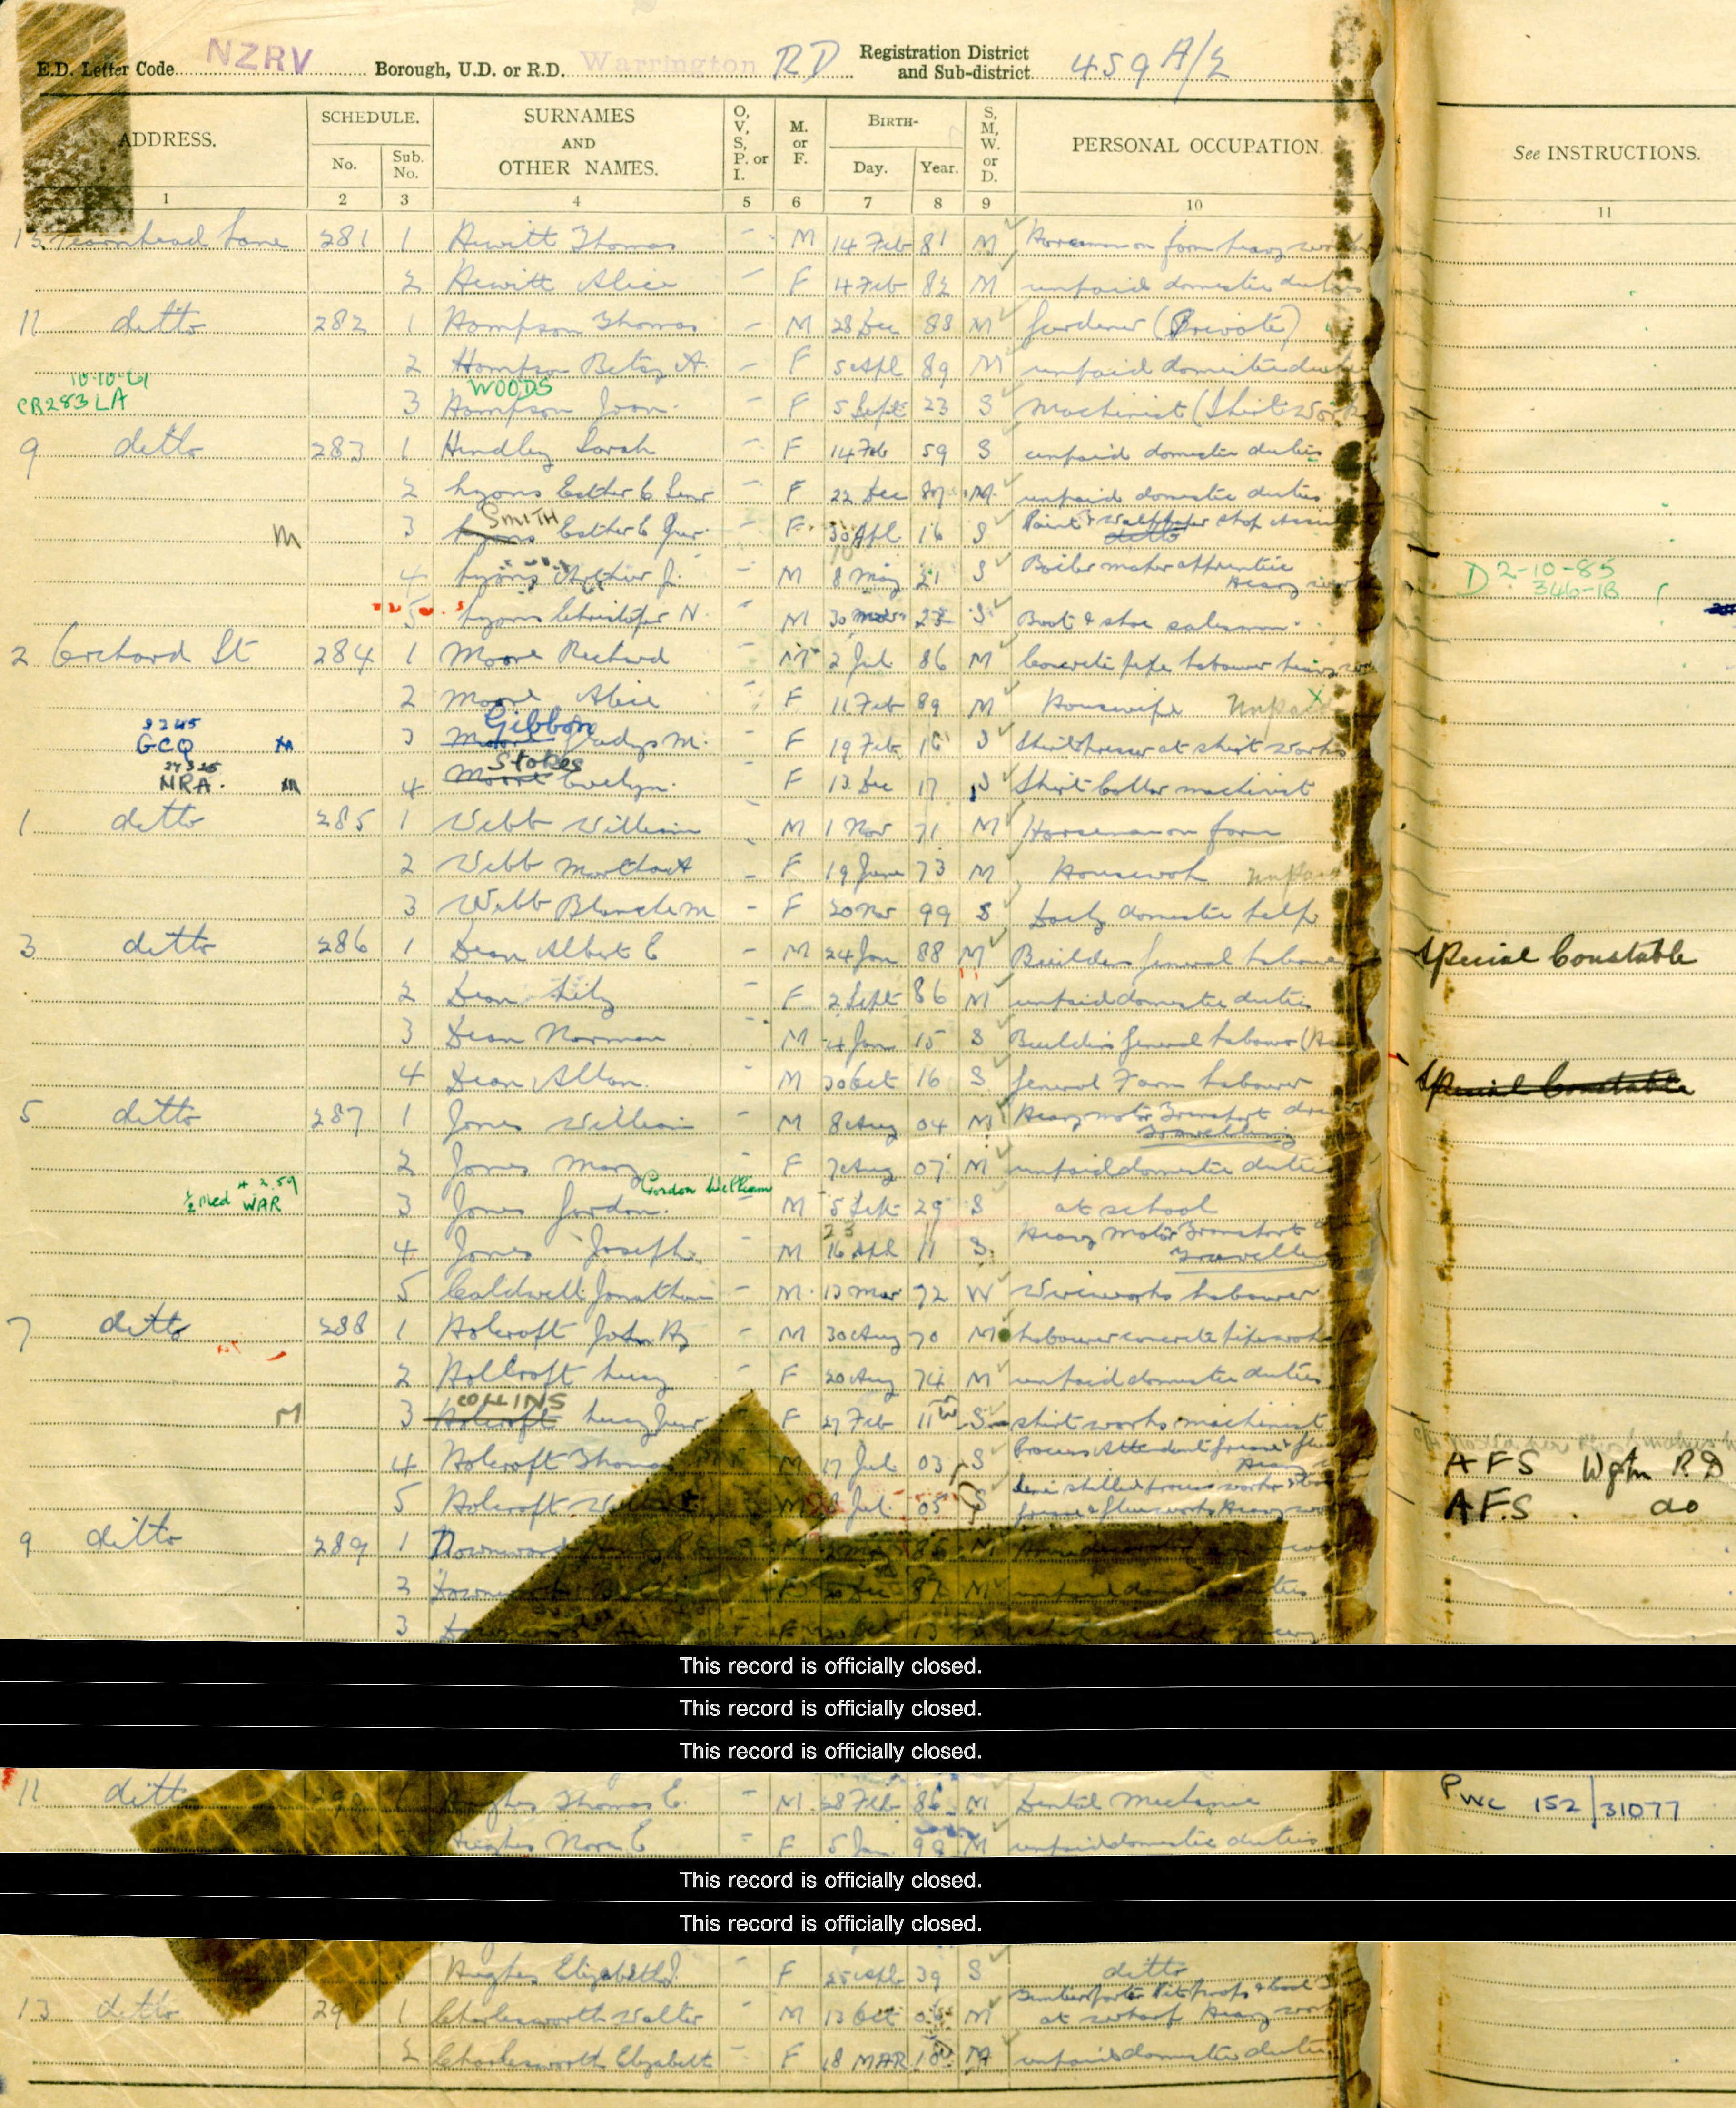 E.D. Letter Code NZRV Borough, U.D. or R.D. Warrington RD Registration District and Sub-district 459 A/2
ADDRESS. SCHEDULE. No. Sub. No. SURNAMES AND OTHER NAMES. O, V, S, P. or I. M. or F. BIRTH- Day. Year. S, M, W. or D. PERSONAL OCCUPATION. See INSTRUCTIONS.
1 2 3 4 5 6 7 8 9 10 11
13 Fearnhead Lane 281 1 Hewitt Thomas - M 14 Feb 81 M Horseman on farm heavy
2 Hewitt Alice - F 14 Feb 82 M unpaid domestic duties
11 ditto 282 1 Hampson Thomas - M 28 Dec 88 M Gardener (Private)
2 Hampson Betsy A. - F 5 Apl 89 M unpaid domestic
10-10-61
CR283 LA
WOODS
3 Hampson Joan - F 5 Sept 23 S Machinist (Shirt Work
9 ditto 283 1 Hindley Sarah - F 14 Feb 59 S unpaid domestic duties
2 Lyons Esther C Senr - F 22 Dec M unpaid domestic duties
SMITH
M 3 Lyons Esther C Junr. - F 30 Apl 16 S Paint & Wallpaper shop
ditto
4 Lyons Arthur J. - M 8 May 21 S Boiler maker apprentice
Heavy
D 2-10-85
346-1B
5 Lyons Christopher N. - M 30 23 S Boot & shoe salesman
2 Orchard St 284 1 Moore Richard - M 2 Jul 86 M Concrete pipe labourer heavy
2 Moore Alice - F 11 Feb 89 M Housewife Unpaid
Gibbon
GCQ M 3 Moore Gladys M. - F 19 Feb 16 S Shirt presser at shirt works
Stokes
NRA. M 4 Moore Evelyn - F 13 Dec 17 S Shirt Collar machinist
1 ditto 285 1 Webb William - M 1 Nov 71 M Horseman on farm
2 Webb Martha A - F 19 June 73 M Housework unpaid
3 Webb Blanche M - F 20 Nov 99 S Daily domestic help
3 ditto 286 1 Dean Albert E - M 24 Jan 88 M Builders general labourer Special Constable
2 Dean Lily - F 2 Sept 86 M unpaid domestic duties
3 Dean Norman - M 4 Jan 15 S Builders general labourer
4 Dean Allan - M 30 Oct 16 S General Farm labourer Special Constable
5 ditto 287 1 Jones William - M 8 Aug 04 M Heavy motor Transport
travelling
2 Jones Mary - F 7 Aug 07 M unpaid domestic duties
4 2.59
½ Med WAR
Gordon William
3 Jones Gordon - M 5 Sept 29 S at school
23
4 Jones Joseph - M 16 Apl 11 S Heavy Motor Transport
Travelling
5 Caldwell Jonathan - M 13 Mar 72 W Wireworks labourer
7 ditto 288 1 Holcroft John Hy - M 30 Aug 70 M labourer concrete pipe works
2 Holcroft Lucy - F 20 Aug 74 M unpaid domestic duties
COLLINS
M 3 Holcroft Lucy Junr - F 27 Feb 11 S shirt works machinist
4 Holcroft Thomas M 17 Jul 03 S Process Attendant
AFS Wgtn RD
5 Holcroft M Jul 05 S
AFS. do
9 ditto 289 1 M
2 F 20 Dec 87 M unpaid domestic duties
3 F
This record is officially closed.
This record is officially closed.
This record is officially closed.
11 ditto Hughes Thomas E. - M 28 Feb 86 M Dental Mechanic PWC 152/31077
Hughes Nora E - F 5 Jan 98 M unpaid domestic duties
This record is officially closed.
This record is officially closed.
Hughes Elizabeth J. - F 25 Apl 39 S ditto
13 ditto 1 Charlesworth Walter - M 13 Oct M
at wharf Heavy work
2 Charlesworth Elizabeth - F 18 MAR 10 M unpaid domestic duties